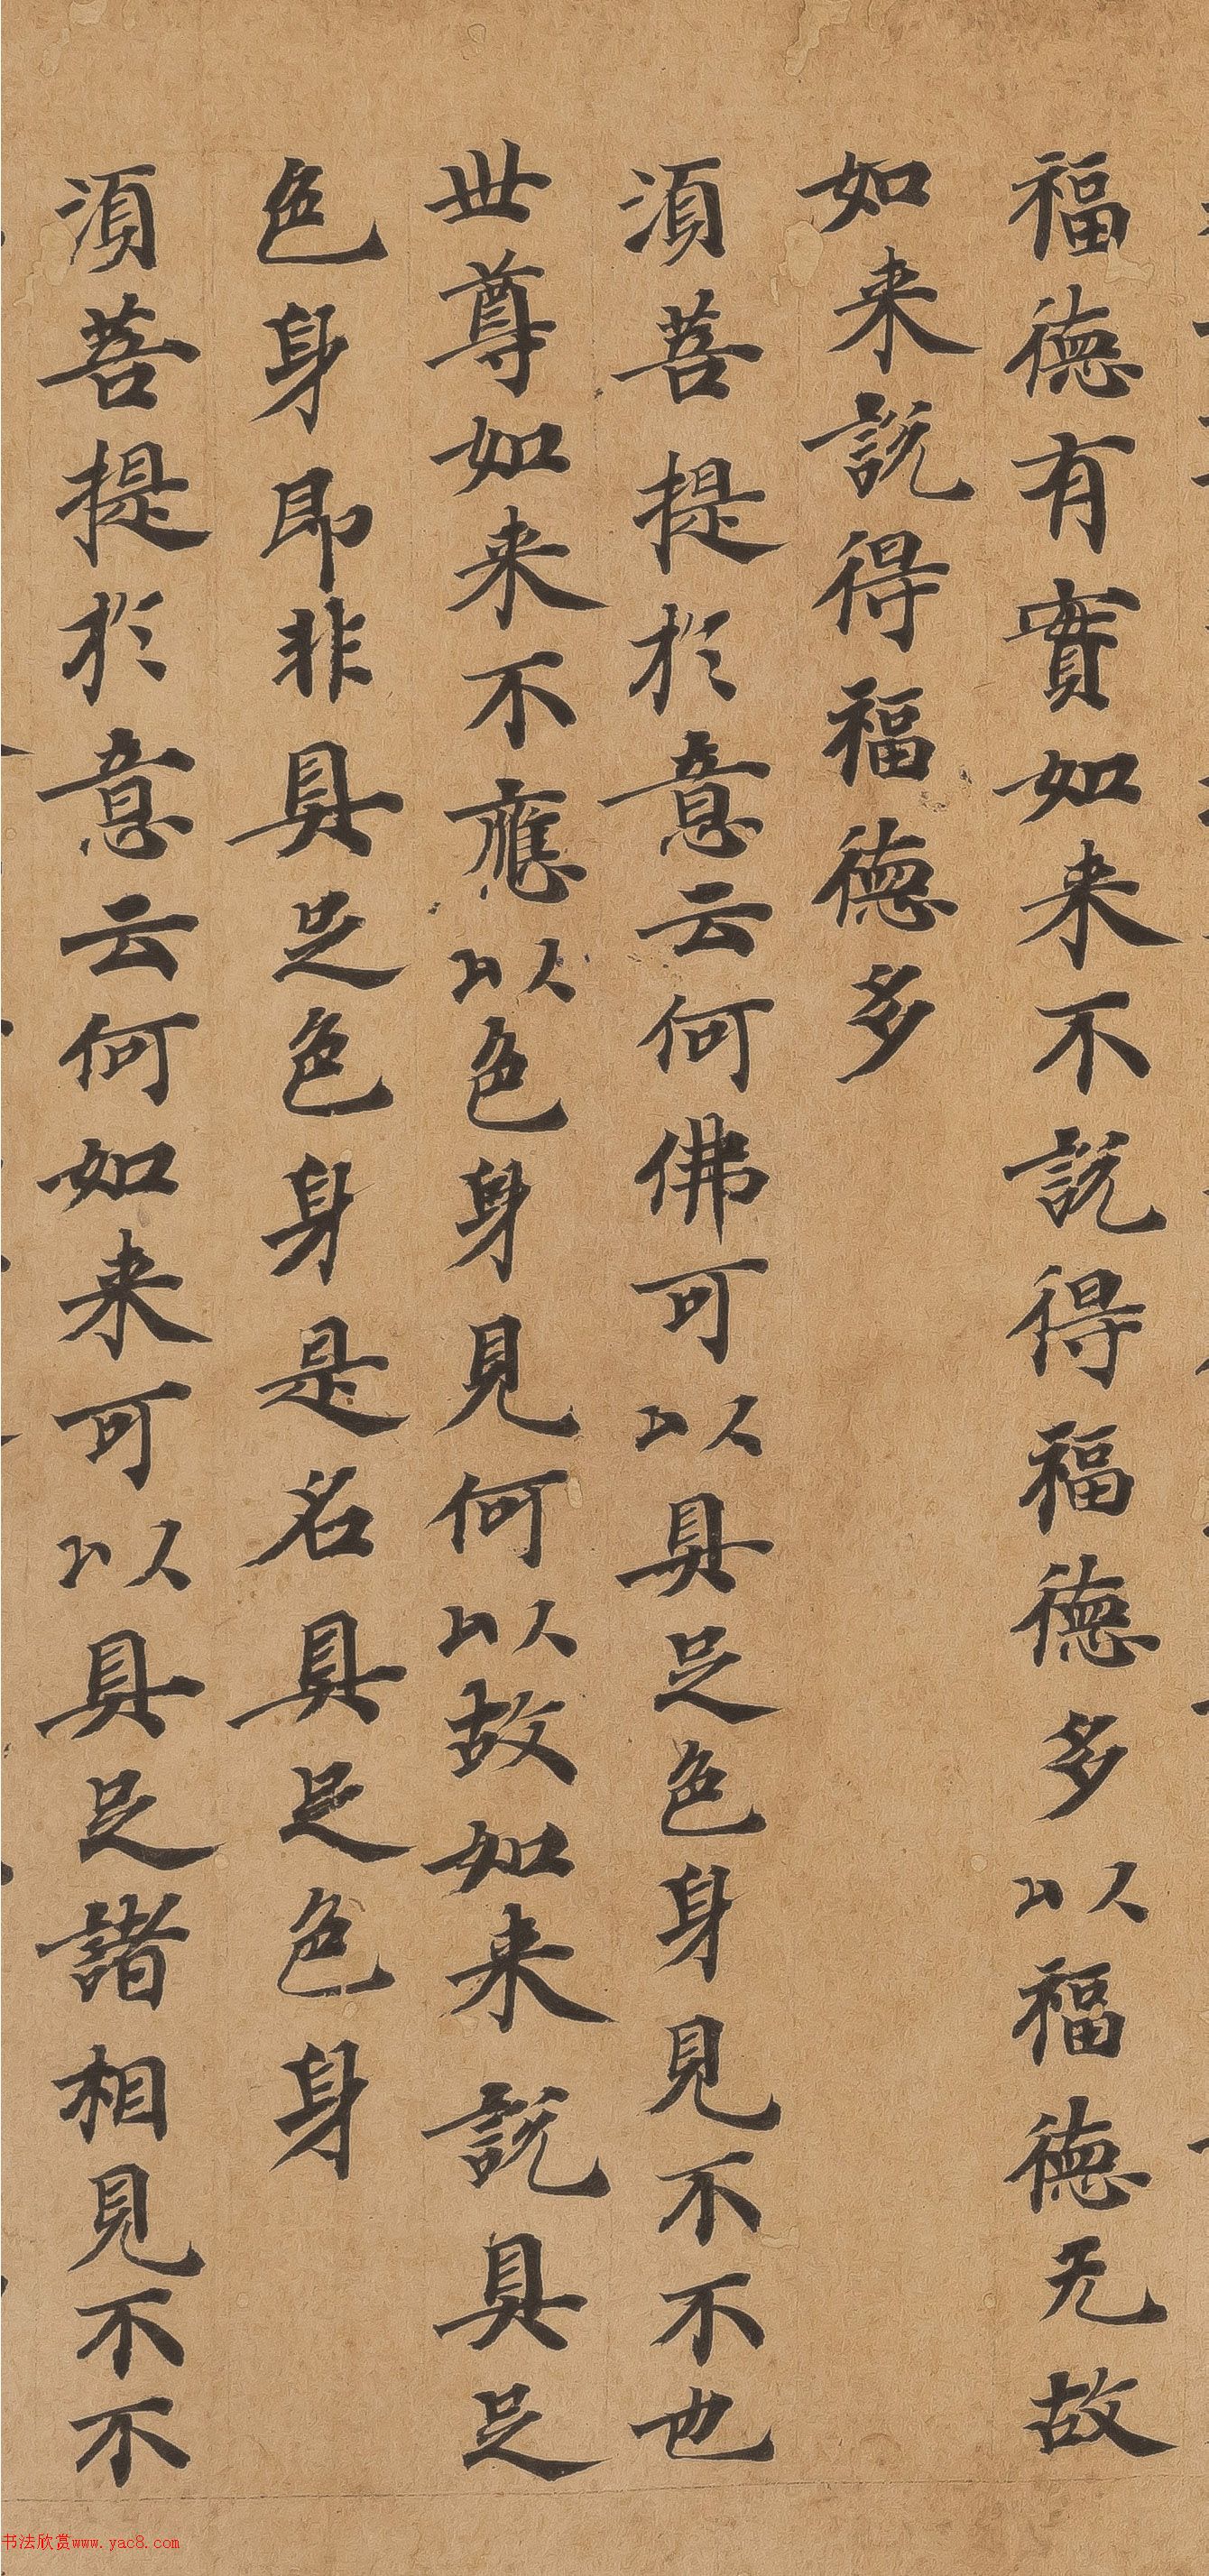 福德有實如来不説得福德多以福德无故
如来説得福德多
湏菩提扵意云何佛可以具足色身見不不也
世尊如来不應以色身見何以故如来説具足
色身即非具足色身是名具足色身
湏菩提扵意云何如来可以具足諸相見不不
书法欣赏www.yac8.com